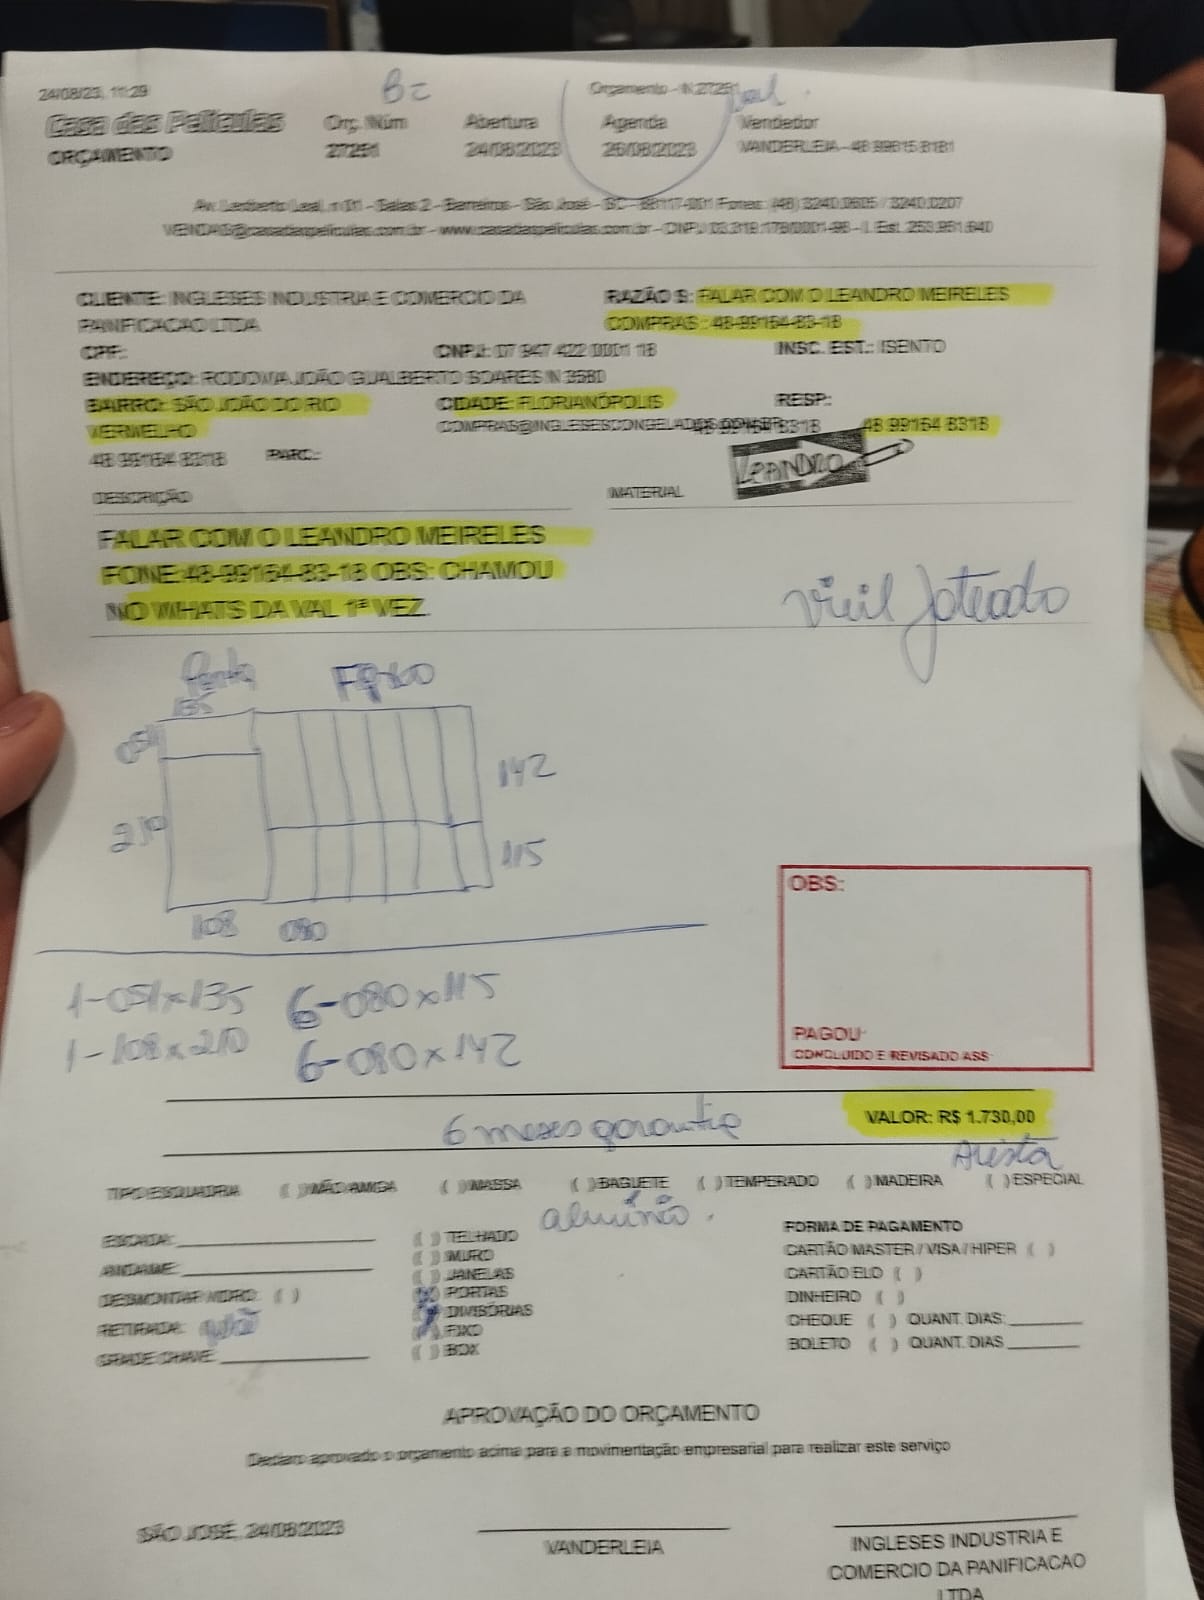 24/08/23, 11:29
Orçamento - N 27251
Casa das Películas Orç. Núm Abertura Agenda Vendedor
ORÇAMENTO 27251 24/08/2023 26/08/2023 VANDERLEIA - 48 99615 8181
Av. Leoberto Leal, n 01 - Salas 2 - Barreiros - São José - SC - 88117-001 Fones: (48) 3240.0605 / 3240.0207
VENDAS@casadaspeliculas.com.br - www.casadaspeliculas.com.br - CNPJ 03.319.178/0001-98 - I. Est. 253.951.640
CLIENTE: INGLESES INDUSTRIA E COMERCIO DA PANIFICACAO LTDA
RAZÃO S: FALAR COM O LEANDRO MEIRELES COMPRAS : 48-99164-83-18
CPF: CNPJ: 07 947 422 0001 18 INSC. EST.: ISENTO
ENDEREÇO: RODOVIA JOÃO GUALBERTO SOARES N 3580
BAIRRO: SÃO JOÃO DO RIO VERMELHO CIDADE: FLORIANÓPOLIS RESP:
48 99164 8318
48 99164 8318 PARC.:
LEANDRO
DESCRIÇÃO MATERIAL
FALAR COM O LEANDRO MEIRELES
FONE:48-99164-83-18 OBS: CHAMOU
NO WHATS DA VAL 1ª VEZ.
vinil Jateado
Porta Fixo
135
051
142
210
115
108 080
1-051x135 6-080x115
1-108x210 6-080x142
OBS:
PAGOU
CONCLUIDO E REVISADO ASS
6 meses garantia
VALOR: R$ 1.730,00
TIPO ESQUADRIA ( )MÃO AMIGA ( )MASSA ( )BAGUETE ( )TEMPERADO ( )MADEIRA ( )ESPECIAL
alumínio.
ESCADA:
ANDAIME:
DESMONTAR VIDRO: ( )
RETIRADA: não
GRADE CHAVE:
( ) TELHADO
( ) MURO
( ) JANELAS
(X) PORTAS
DIVISÓRIAS
FIXO
( ) BOX
FORMA DE PAGAMENTO
CARTÃO MASTER / VISA / HIPER ( )
CARTÃO ELO ( )
DINHEIRO ( )
CHEQUE ( ) QUANT. DIAS:
BOLETO ( ) QUANT. DIAS
APROVAÇÃO DO ORÇAMENTO
Declaro aprovado o orçamento acima para a movimentação empresarial para realizar este serviço
SÃO JOSÉ, 24/08/2023
VANDERLEIA
INGLESES INDUSTRIA E
COMERCIO DA PANIFICACAO
LTDA